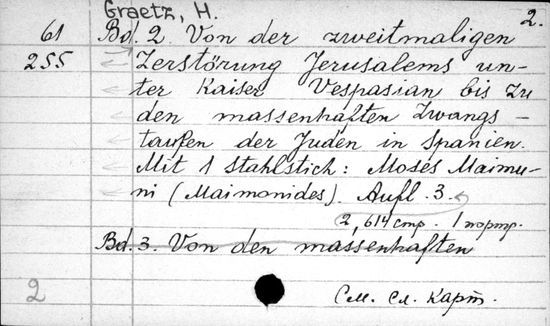 Graetz, H.
2.
61 Bd. 2. Von der zweitmaligen
255 Zerstörung Jerusalems un-
ter Kaiser Vespasian bis zu
den massenhaften Zwangs-
taufen der Juden in Spanien.
Mit 1 Stahlstich: Moses Maimu-
ni (Maimonides). Aufl. 3.
2, 614 стр. 1 портр.
Bd. 3. Von den massenhaften
2
См. сл. карт.